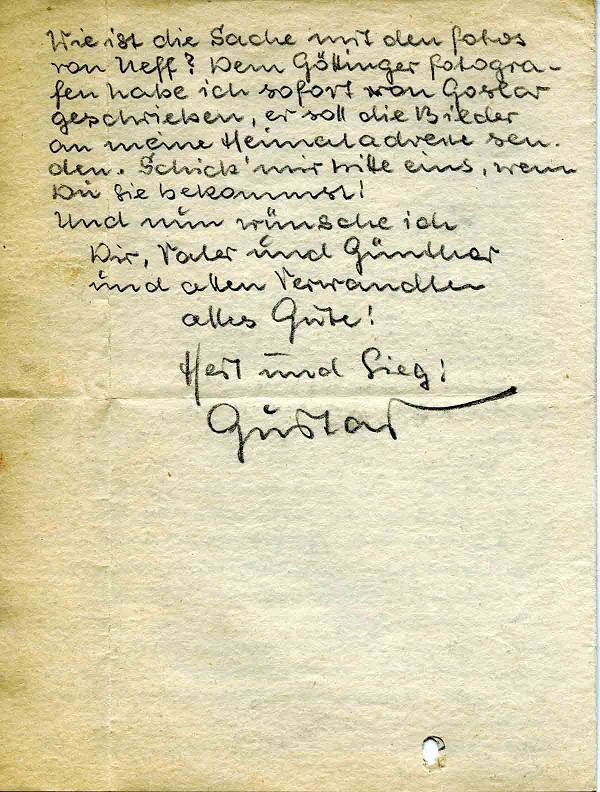 Wie ist die Sache mit den Fotos
von Neff? Dem Göttinger Fotogra-
fen habe ich sofort von Goslar
geschrieben, er soll die Bilder
an meine Heimatadresse sen-
den. Schick' mir bitte eins, wenn
Du sie bekommst!
Und nun wünsche ich
Dir, Vater und Günther
und allen Verwandten
alles Gute!
Heil und Sieg!
Gustav